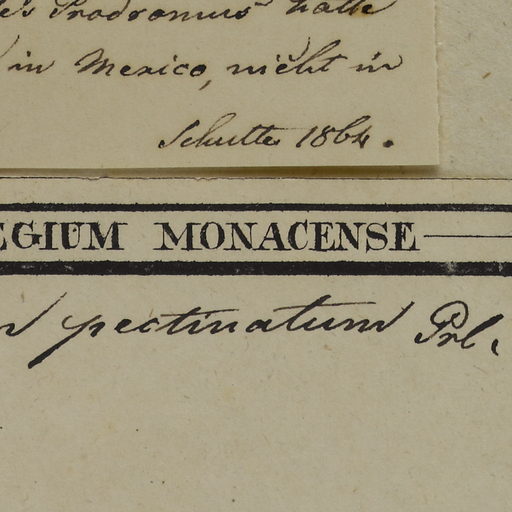 Prodromus hatte
in Mexico, nicht in
1864.
EGIUM MONACENSE
pectinatum Prl.